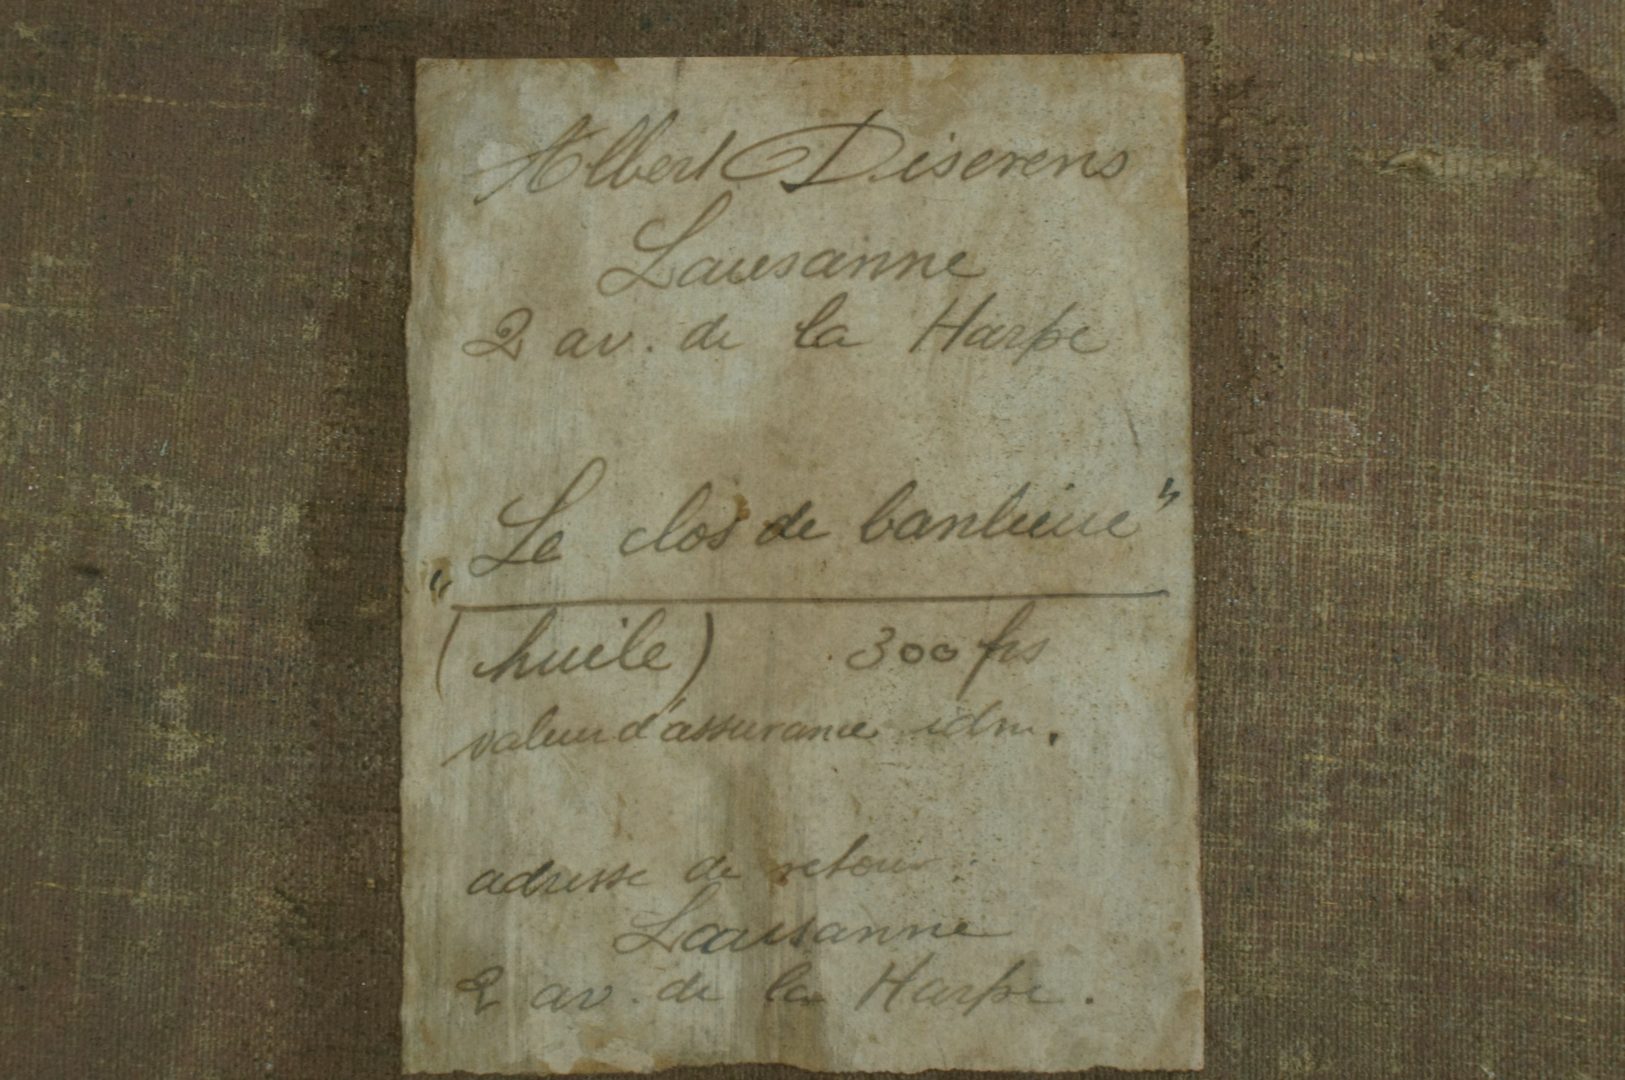 Albert Diserens
Lausanne
2 av. de la Harpe
„Le clos de banlieue”
(huile) 300 frs
valeur d'assurance idm.
adresse de retour
Lausanne
2 av. de la Harpe.